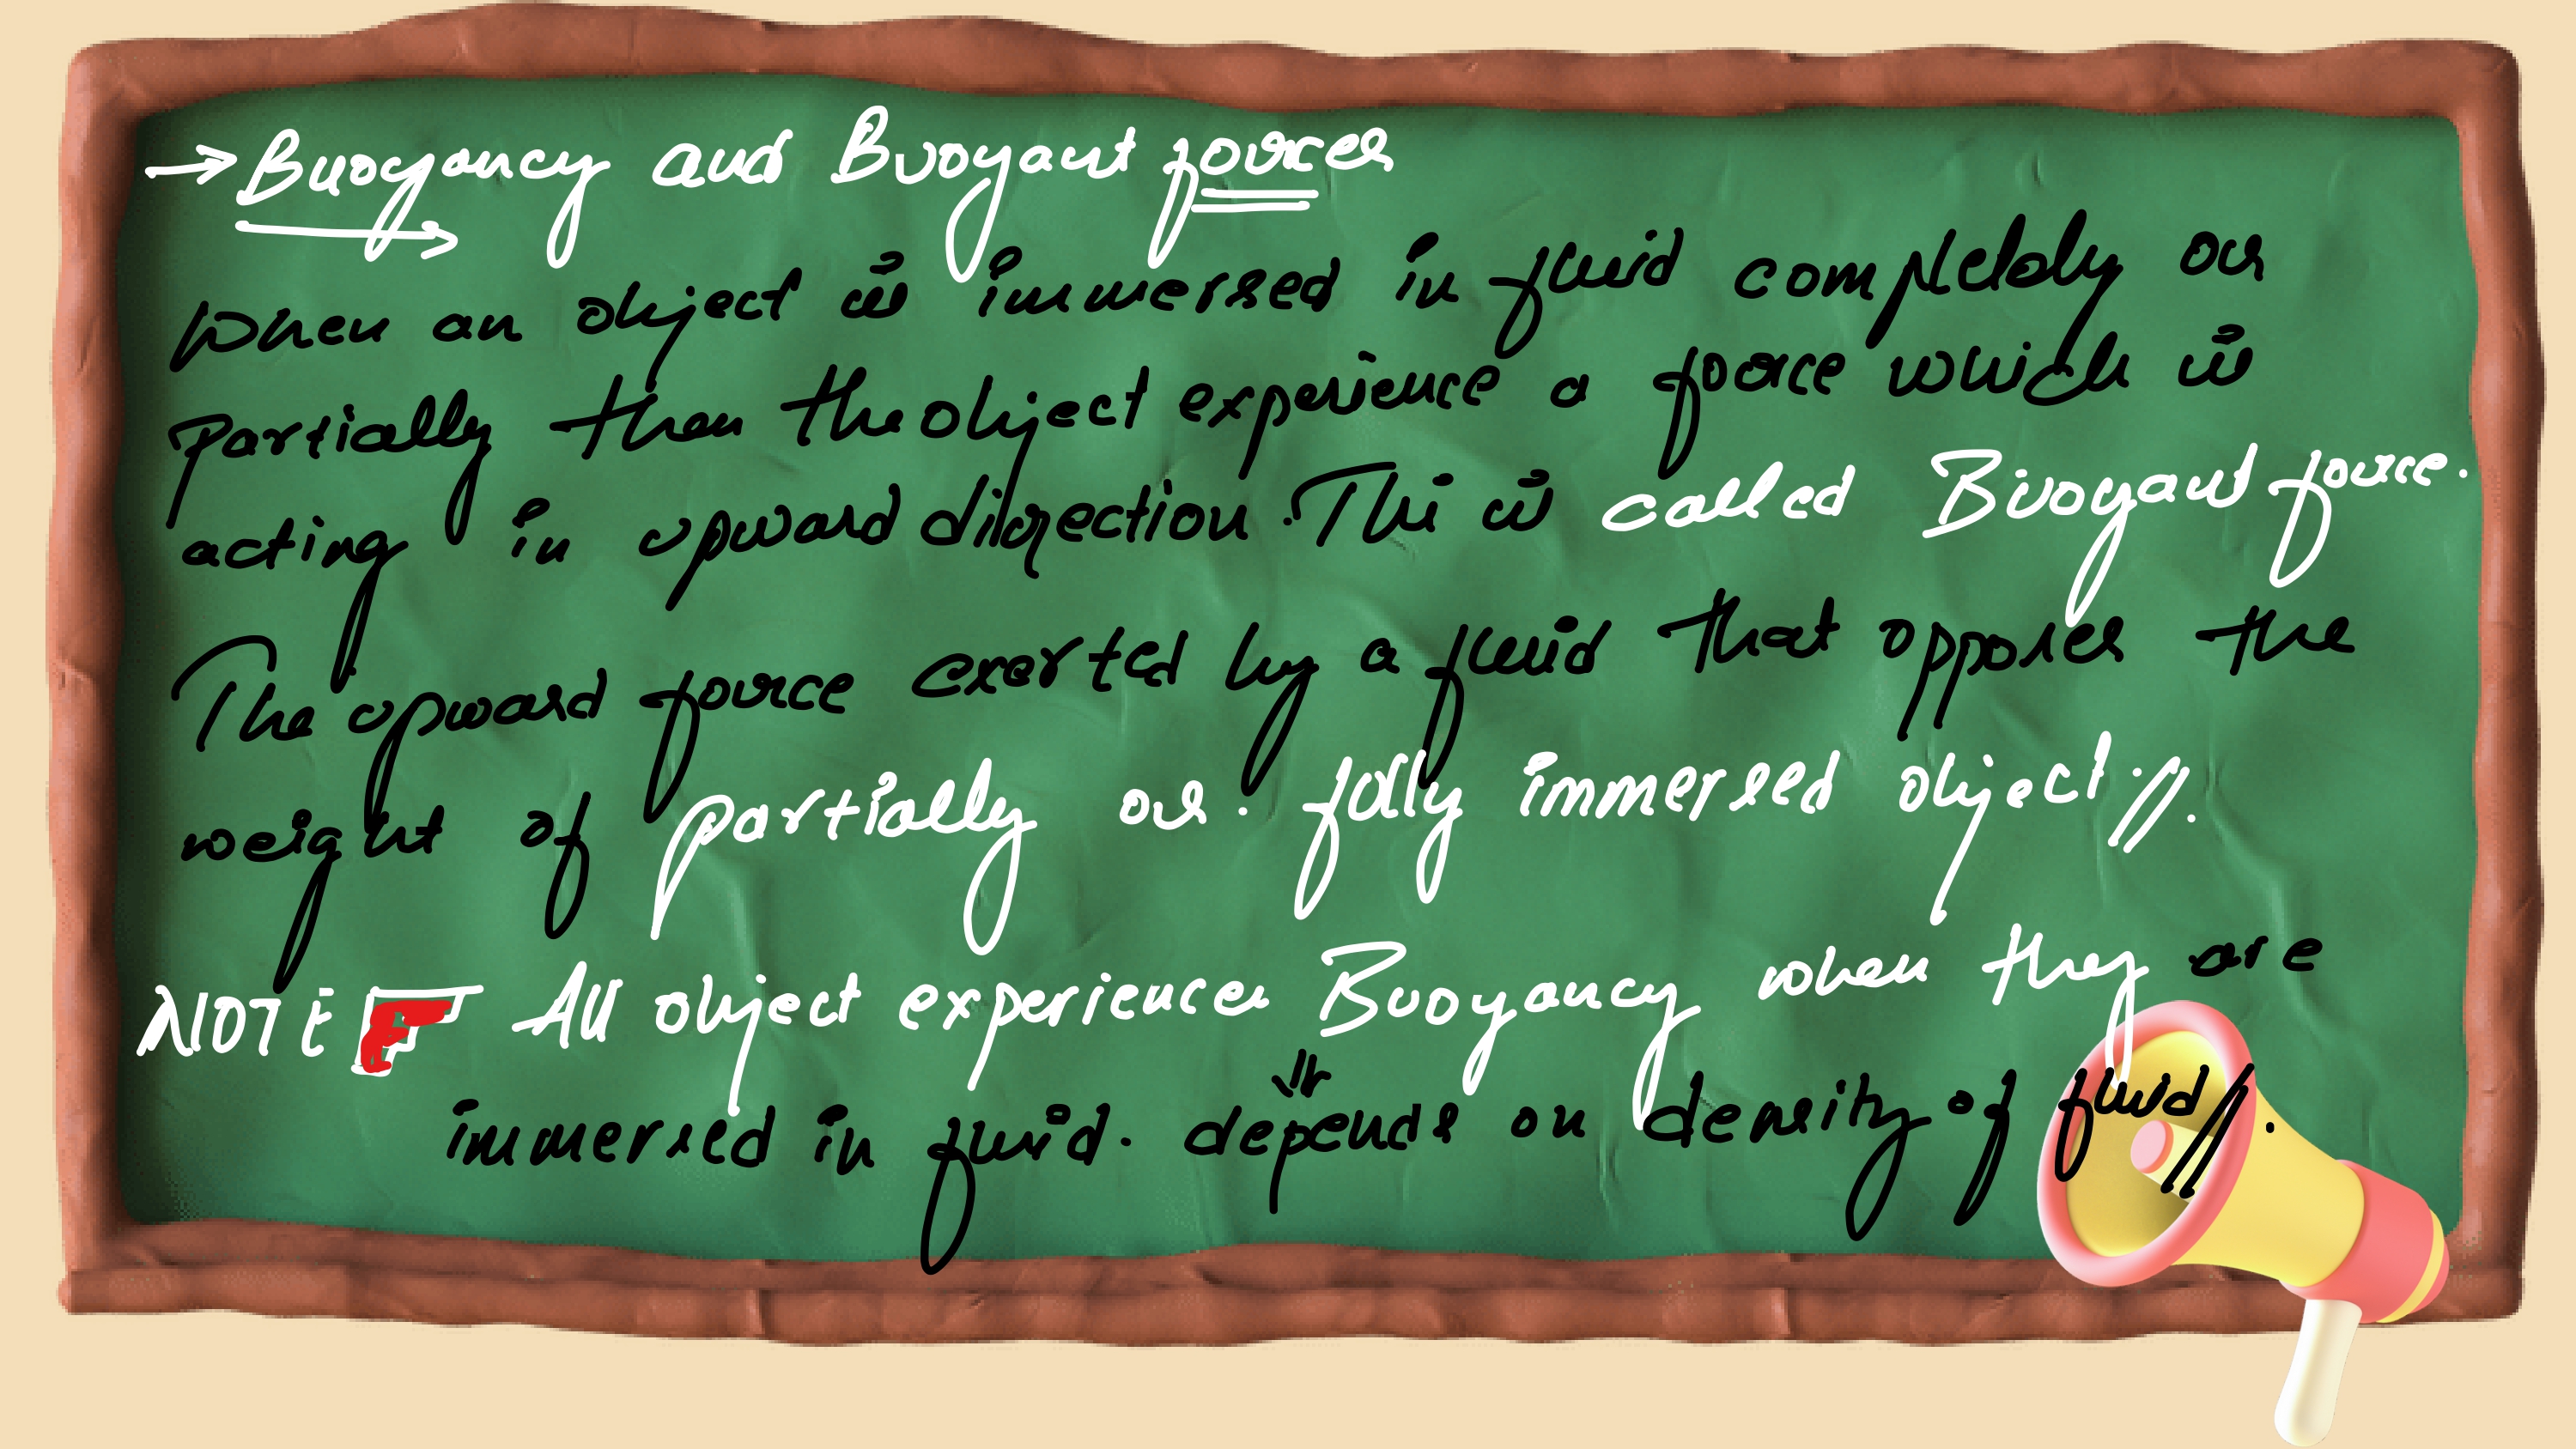 → Buoyancy and Buoyant forces
When an object is immersed in fluid completely or
partially then the object experience a force which is
acting in upward direction. This is called Buoyant force.
The upward force exerted by a fluid that opposes the
weight of partially or. fully immersed object //.
NOTE All object experiences Buoyancy when they are
immersed in fluid. depends on density of fluid //.